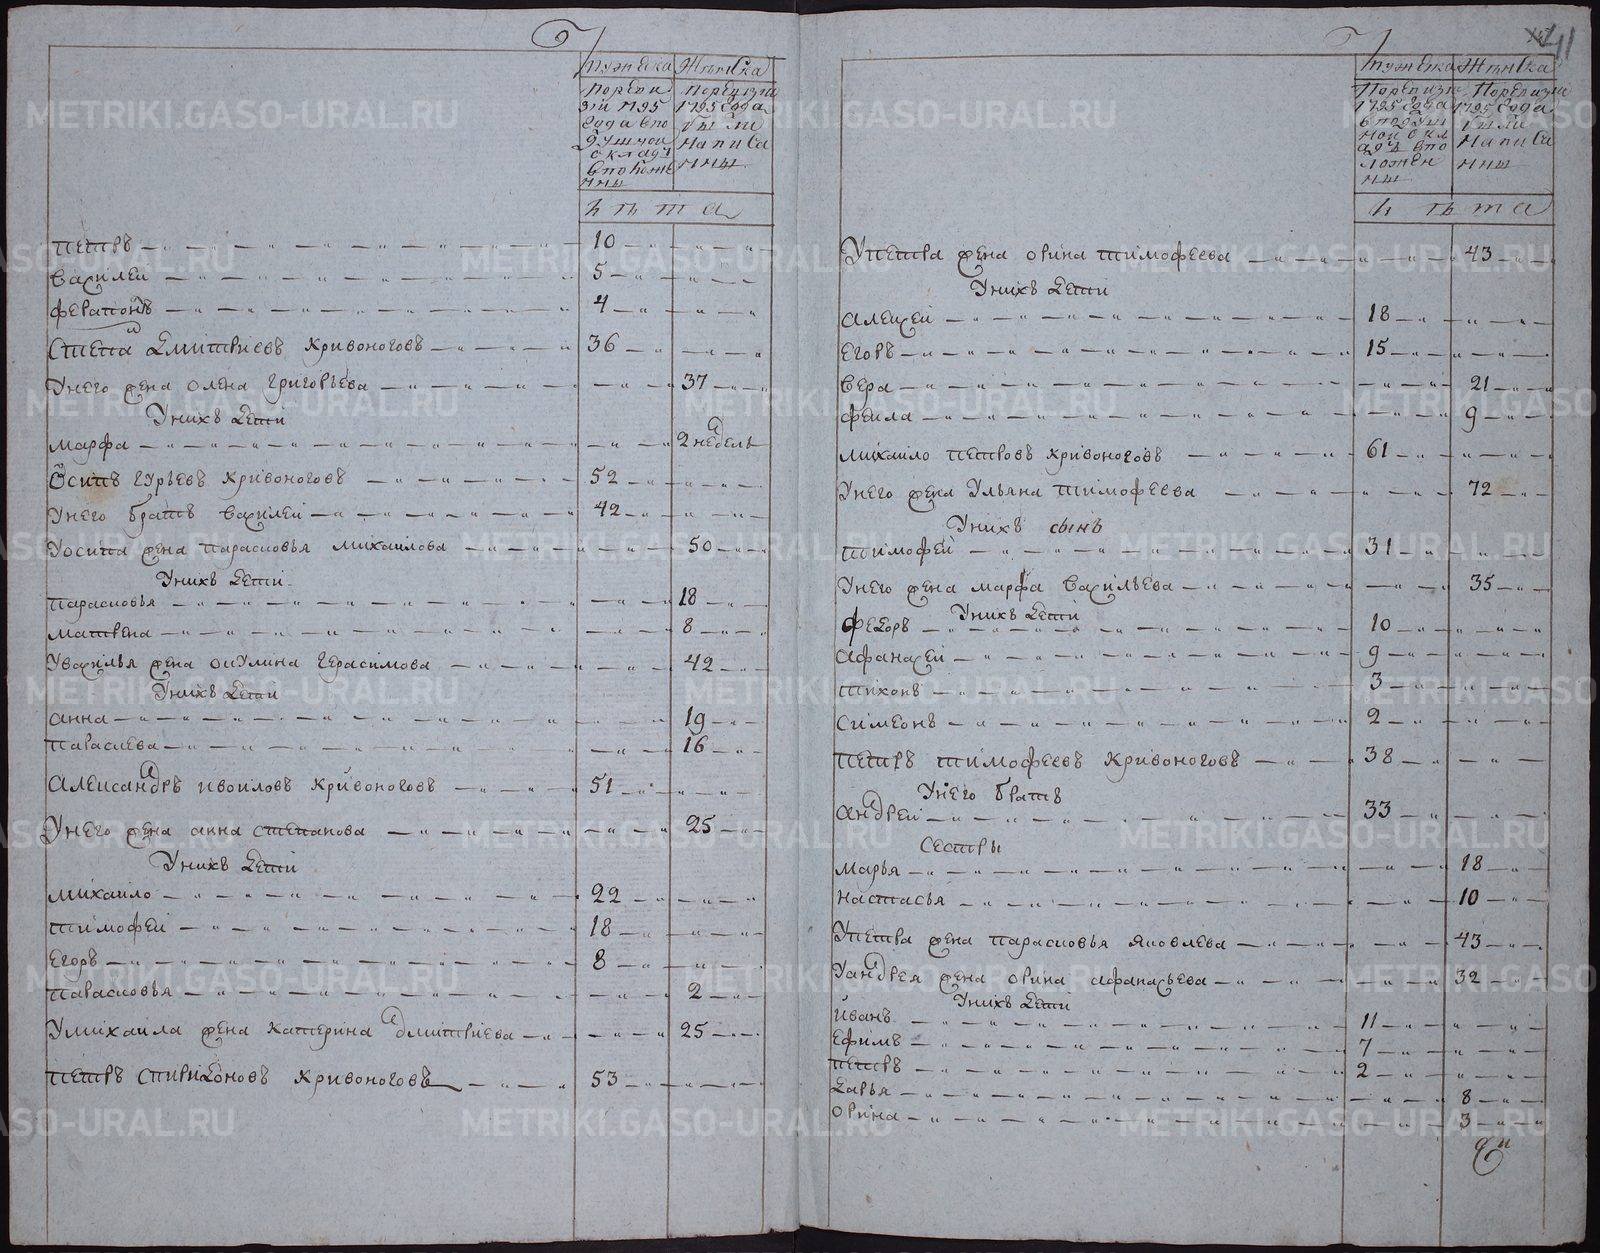 мужеска женска
поревизии 1795 года вподушной окладъ вположенны
поревизии 1795 года были написанны
лѣта
петръ 10
василеи 5
ферапонтъ 4
степанъ дмитриевъ кривоноговъ 36
Унего жена олена григорьева 37
Унихъ дети
марфа 2 недель
осипъ гурьевъ кривоноговъ 52
Унего братъ василеи 42
Уосипа жена парасковья михаилова 50
Унихъ дети
парасковья 18
матрена 8
Увасилья жена окулина герасимова 42
Унихъ дети
анна 19
парасковья 16
александръ ивоиловъ кривоноговъ 51
Унего жена анна степанова 25
Унихъ дети
михаило 22
тимофеи 18
егоръ 8
парасковья 2
Умихаила жена катерина дмитриева 25
петръ спиридоновъ кривоноговъ 53
41
мужеска женска
Поревизии 1795 года вподушной окладъ вположенны
Поревизии 1795 года были написанны
лѣта
Упетра жена орина тимофеева 43
Унихъ дети
алексей 18
егоръ 15
вера 21
фекла 9
михаило петровъ кривоноговъ 61
Унего жена Ульяна тимофеева 72
Унихъ сынъ
тимофей 31
Унего жена марфа васильева 35
Унихъ дети
федоръ 10
афанасей 9
тихонъ 3
симеонъ 2
петръ тимофеевъ кривоноговъ 38
Унего братъ
андрей 33
сестры
марья 18
настасья 10
Упетра жена парасковья яковлева 43
Уандрея жена орина афанасьева 32
Унихъ дети
иванъ 11
ефимъ 7
петръ 2
дарья 8
орина 3
METRIKI.GASO-URAL.RU